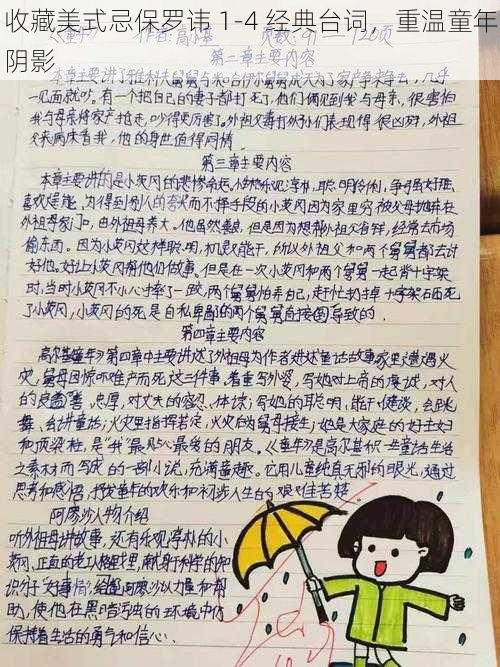 收藏美式忌保罗讳 1-4 经典台词，重温童年
阴影
第二章主要内容
本章主要讲了雅科夫舅舅与米哈伊尔舅舅成天为了家产争来争去，几乎
一见面就吵。有一个把自己的妻子都打死了，他们偶见到我与母亲，很害怕
我与母亲将家产抢走，吵得更厉害了。外祖父毒打外孙们表现得很凶残，外祖
父来病床看我，他的身世值得同情
第三章主要内容
本章主要讲的是小茨冈的悲惨命运。小茨冈乐观淳朴，聪明伶俐，争强好胜
喜欢逞能，为得到别人的夸奖而不择手段的小茨冈因为家里穷被父母抛弃在
外祖母家门口，由外祖母养大。他虽然善良，但是因为想帮外祖父省钱，经常去市场
偷东西。因为小茨冈这样聪明，机灵，能干，所以外祖父和两个舅舅都去讨
好他。好让小茨冈帮他们做事。但是在一次小茨冈和两个舅舅一起背十字架
时，当时小茨冈不小心摔了一跤，两个舅舅怕弄自己，赶忙扔掉十字架石砸死
了小茨冈，小茨冈的死是自私卑鄙的两个舅舅直接倒导致的．
第四章主要内容
高尔基《童年》第四章中主要讲述了外祖母为作者讲故童话故事家里遭遇火
灾，舅母因惊吓难产而死这三件事。着重写外婆，写她对上帝的虔诚，对人
的良善，忠厚，对丈夫的容忍、体谅；写她的聪明，能干，健谈，会跳
舞、会讲童话；火灾里指挥若定，火灾后为舅母接生；她是大家庭的好主妇
和顶梁柱，是"我"最贴心最爱的朋友。《童年》是高尔基积一生童话生活
之素材而写成的一部小说，充满童趣。它用儿童纯真无邪的眼光，通过
思考和感悟，抒发童年的欢乐和初涉人生的艰难佳苦楚
阿廖沙人物介绍
听外祖母讲故事，还有乐观淳朴的小
茨冈、正直的老工人格里戈里、献身于科学的知
识分子"好事情"给阿廖沙以力量和帮
助，使他在黑暗污浊的环境中仍
保持着生活的勇气和信心．